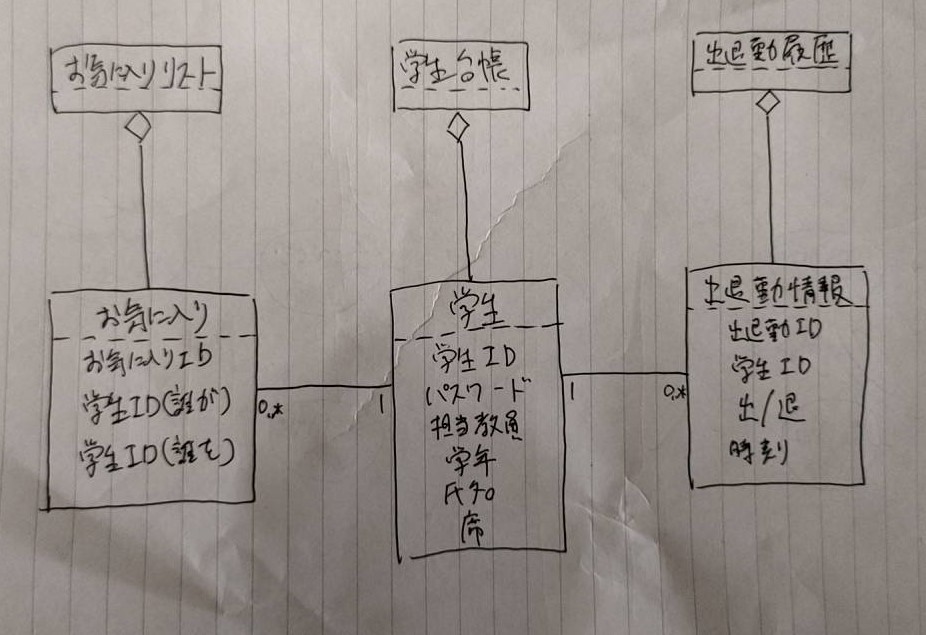 お気に入りリスト
学生台帳
出退勤履歴
お気に入り
お気に入りID
学生ID(誰が)
学生ID(誰を)
0,*
1
学生
学生ID
パスワード
担当教員
学年
氏名
席
1
0,*
出退勤情報
出退勤ID
学生ID
出/退
時刻